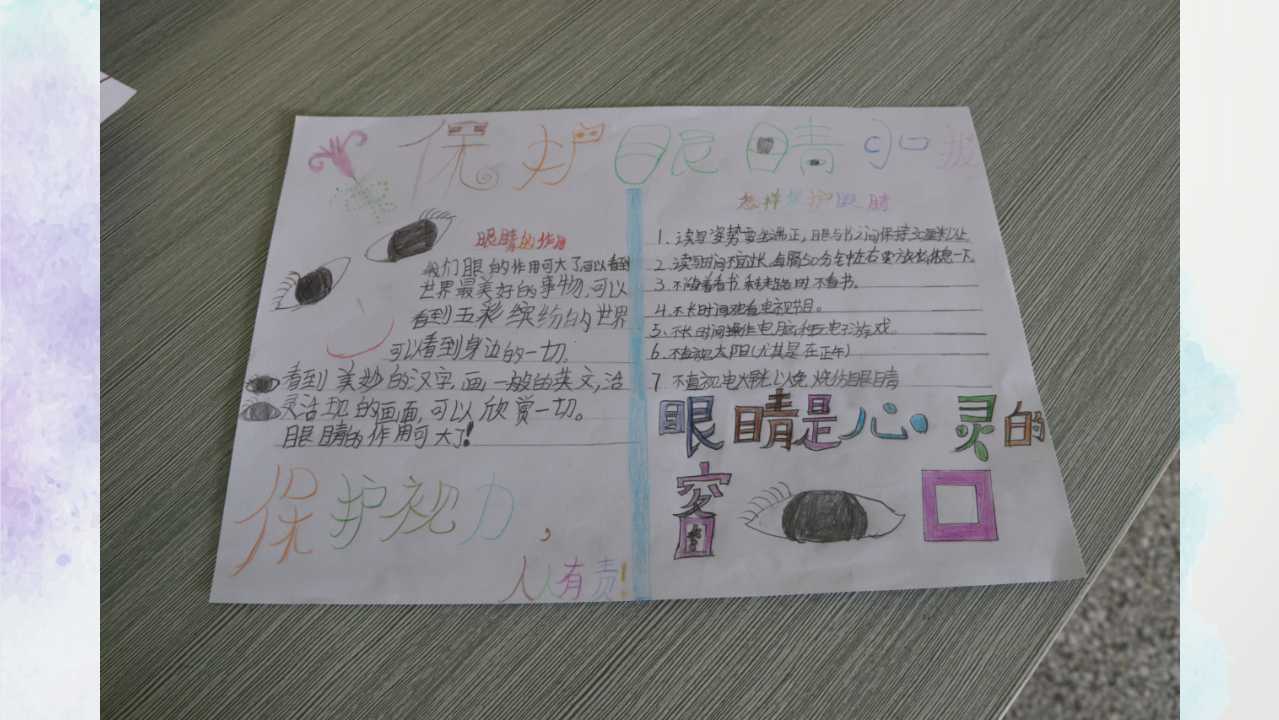 保护眼睛小报
眼睛的作用
我们眼的作用可大了,可以看到
世界最美好的事物,可以
看到五彩缤纷的世界
可以看到身边的一切.
看到美妙的汉字,画,一般的英文,活
灵活现的画面,可以欣赏一切。
眼睛的作用可大了!
保护视力,
人人有责!
怎样保护眼睛
1、读写姿势要坐端正,眼与书之间保持
2、读写时间不宜过长,每隔50分钟左右要休息一下。
3、不躺着看书 和走路时不看书。
4、不长时间观看电视节目。
5、不长时间操作电脑和玩电子游戏.
6、不直视太阳(尤其是在正午)
7 不直视电焊光,以免烧伤眼睛
眼睛是心灵的
窗
口